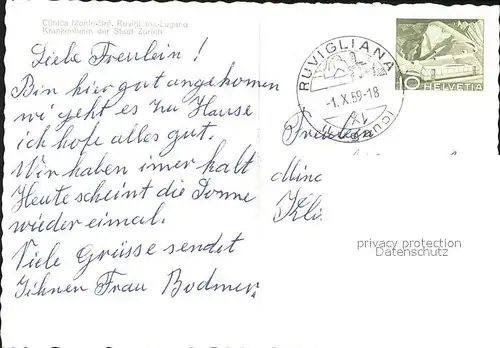 Clinica Monte-Brè, Ruvigliana-Lugano
Krankenheim der Stadt Zürich
Liebe Freulein!
Bin hier gut angekomen
wi geht es zu Hause
ich hofe alles gut.
Wir haben imer kalt
Heute scheint die Sonne
wieder eimal.
Viele Grüsse sendet
Ihnen Frau Bodmer.
RUVIGLIANA
-1.X.59-18
10 HELVETIA
Fräulein
Mine
Kli
privacy protection
Datenschutz